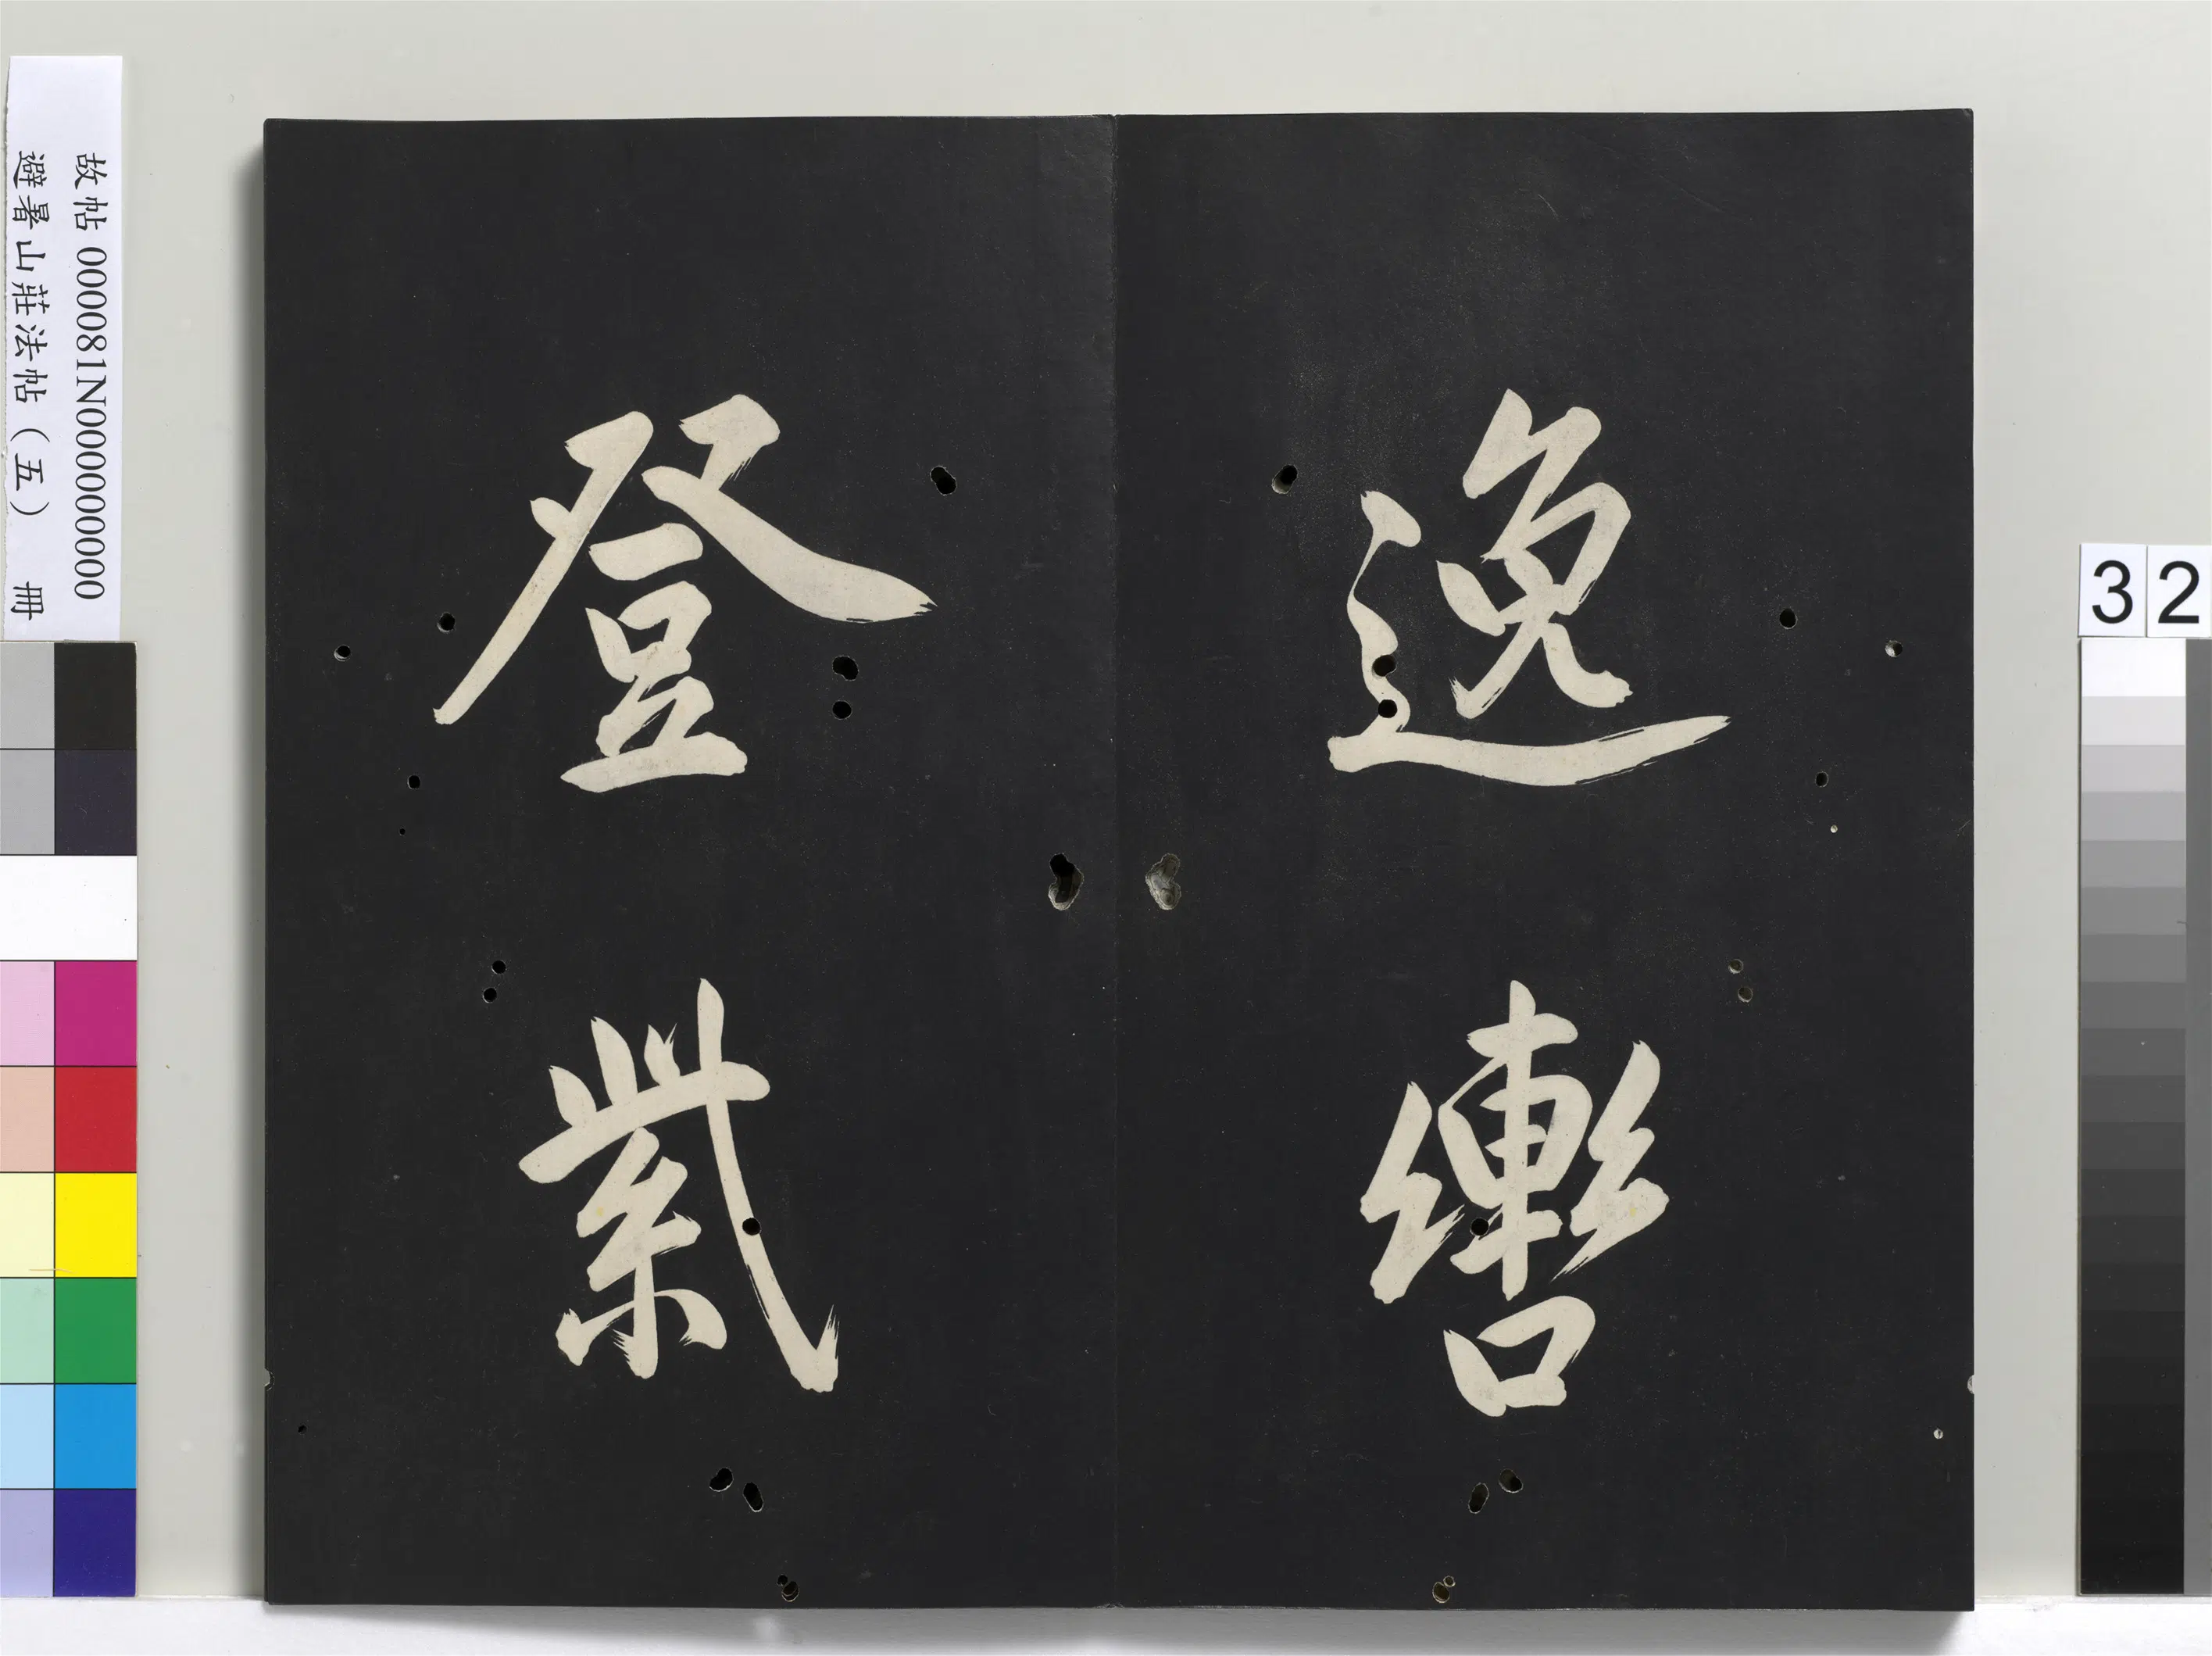 逸轡
登紫
故帖 000081N000000000
避暑山莊法帖（五） 冊
32